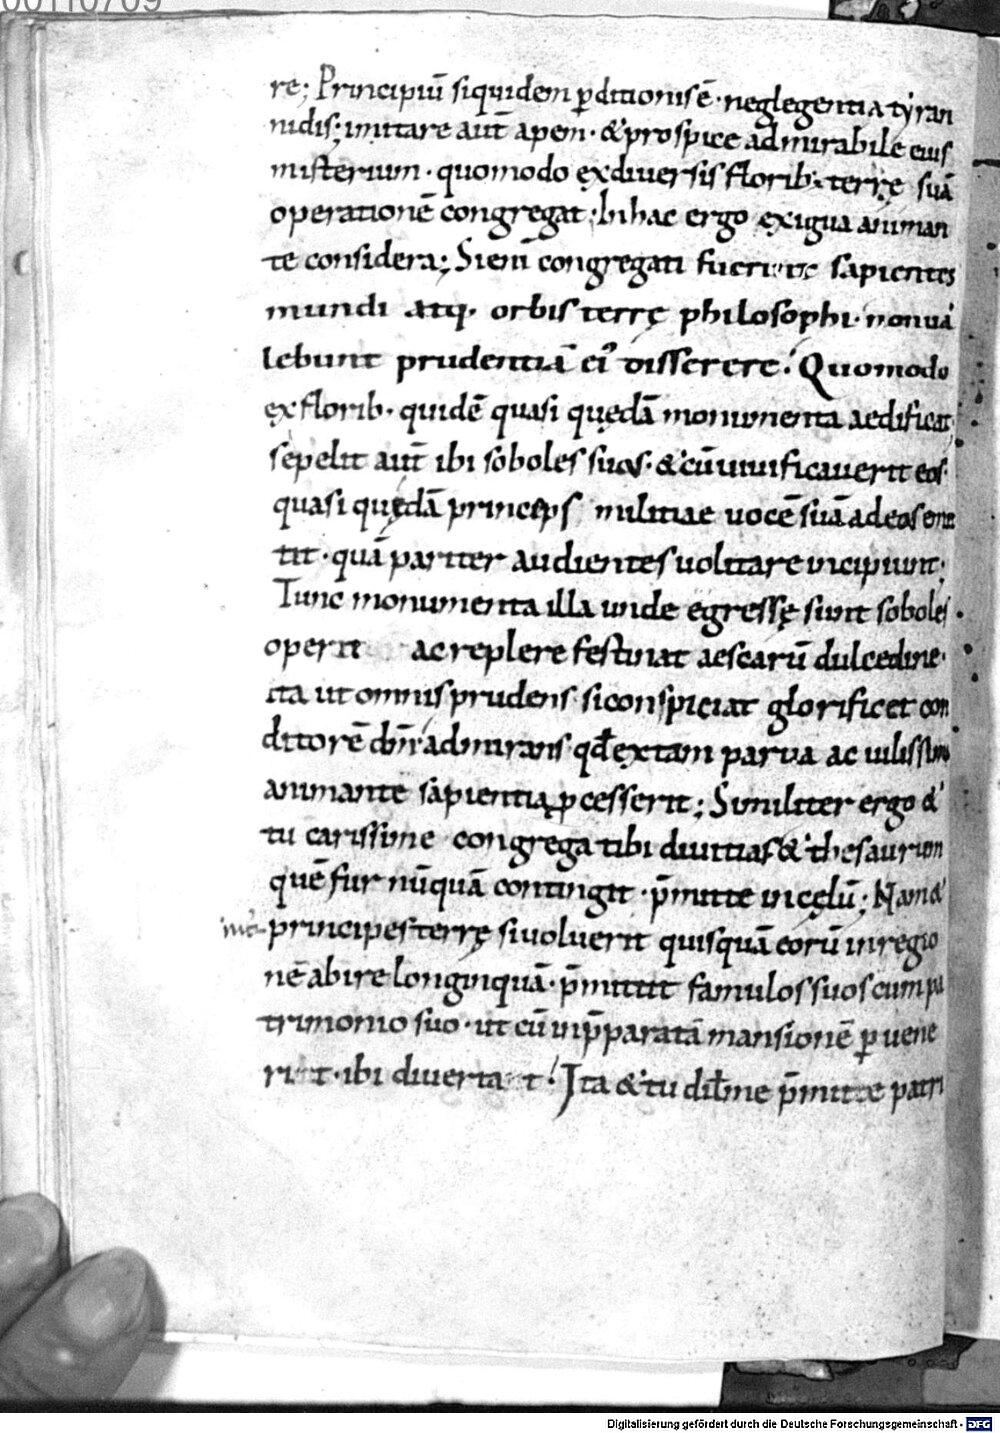 re; Principiū siquidem p̱ditionis ē· neglegentia tyran
nidis; imitare aut̄ apem· & prospice admirabile eius
misterium· quomodo ex diuersis florib; terrę suā
operationē congregat; In hac ergo exigua animan
te considera; Si eni congregati fuerint sapientes
mundi atq· orbis terrę philosophi· non ua
lebunt prudentiā ei' disserere; Quomodo
ex florib· quidē quasi quędā monumenta aedificat
sepelit aut̄ ibi soboles suas· & cū uiuificauerit eos·
quasi quędā princeps militiae uocē suā ad eos emit
tit· quā pariter audientes uolitare incipiunt;
Tunc monumenta illa unde egressę sunt soboles
operit ac replere festinat aescarū dulcedine·
ita ut omnis prudens si conspiciat glorificet con
ditorē dn̄m admirans qđ ex tam parua ac uilissima
animante sapientia p̱cesserit; Similiter ergo &
tu carissime congrega tibi diuitias & thesaurum
quē fur nūquā contingit· p̄mitte in cęlū; Nam &
principes terrę si uoluerit quisquā eorū in regio
nē abire longinquā· p̄mittit famulos suos cum pa
trimonio suo· ut cū in p̄paratā mansionē p̱uene
rit· ibi diuertat; Ita & tu dil̄me p̄mitte patri
00110709
Digitalisierung gefördert durch die Deutsche Forschungsgemeinschaft - DFG